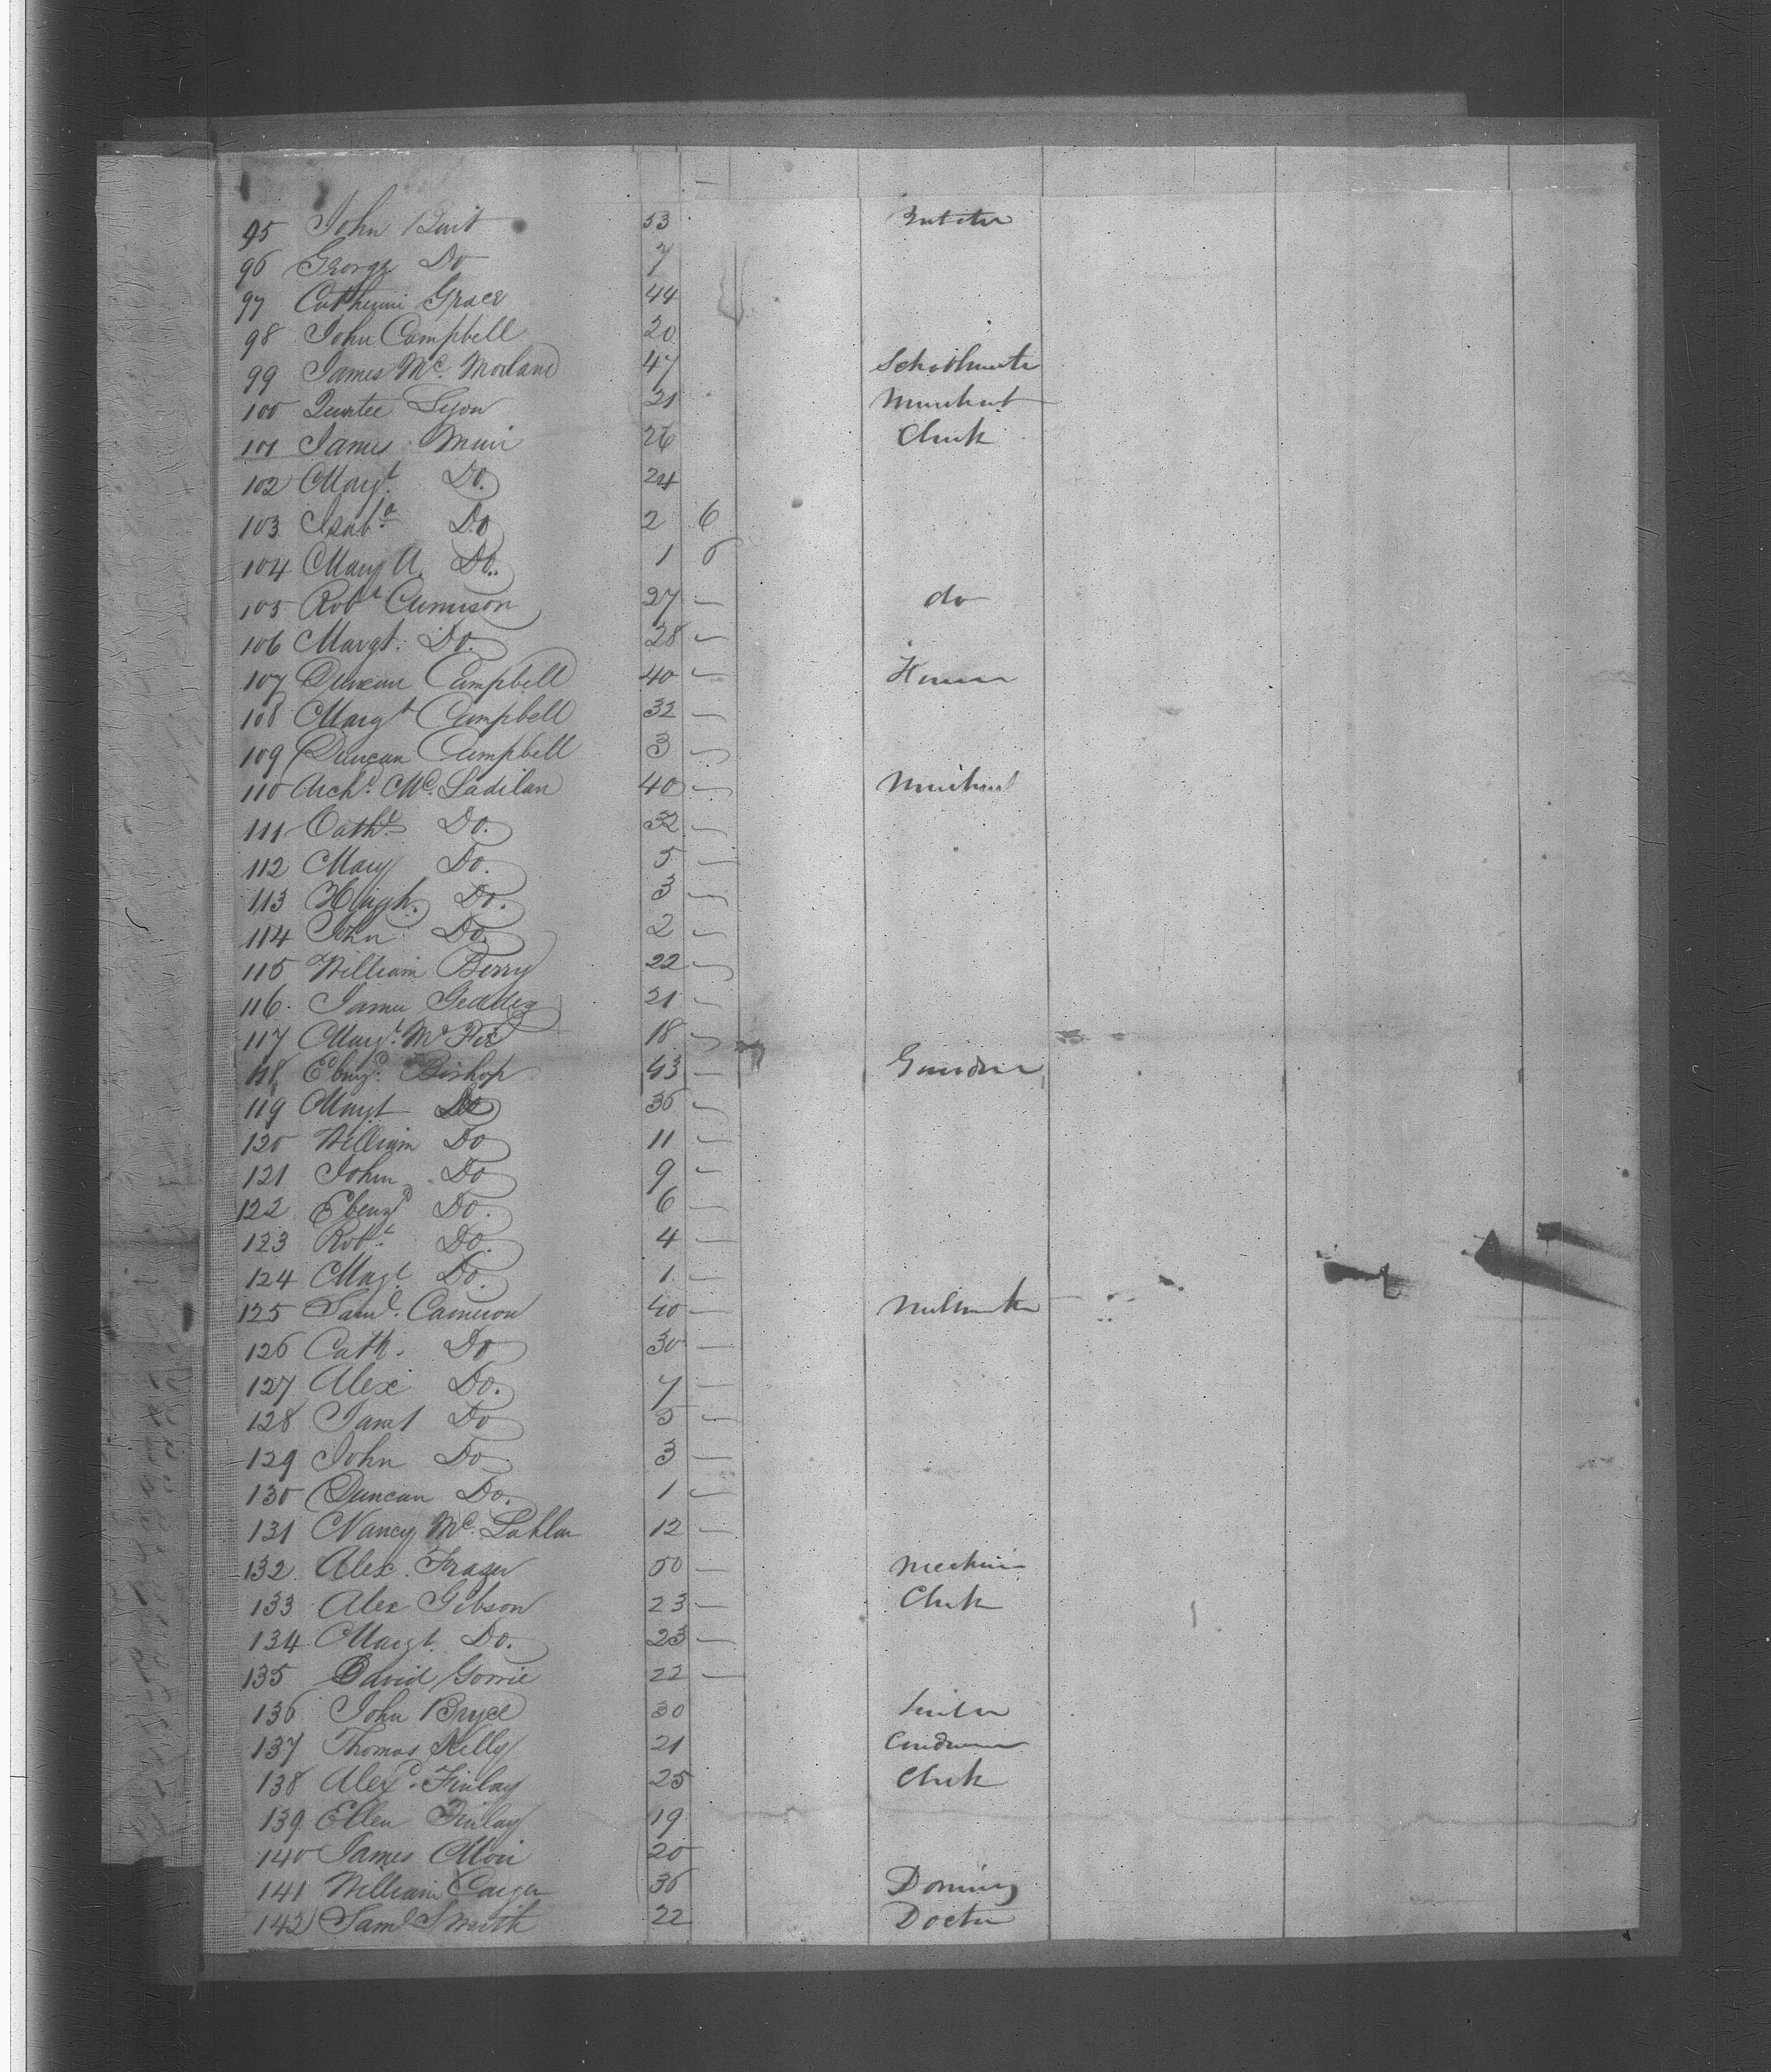 95 John 53
96 George Do 7
97 Catherine Grace 44
98 John Campbell 20
99 James Mc. Morland 47 Schoolmaster
100 Lyon 21 Merchant
101 James Muir 26 Clerk
102 Margt. Do. 24
103 Isab.la Do 2 6
104 Mary A. Do. 1 6
105 Robt Cunnison 27 — do
106 Margt. Do. 28 —
107 Duncan Campbell 40 —
108 Margt Campbell 32 —
109 Duncan Campbell 3 —
110 Archd. Mc. Ladilan 40 — Merchant
111 Cathe. Do. 32 —
112 Mary Do. 5 —
113 Hugh. Do. 3 —
114 John Do. 2 —
115 William Berry 22 —
116. James Geddes 21 —
117 Margt. Mc Fee 18 —
118 Ebenzr. Bishop 43 — Gardner
119 Margt Do 36 —
120 William Do 11 —
121 John Do 9 —
122 Ebenzr Do. 6 —
123 Robt. Do. 4 —
124 Magt. Do. 1. —
125 Saml. Cameron 40 —
126 Cath. Do 30 —
127 Alex Do. 7 —
128 Janet Do 5 —
129 John Do 3 —
130 Duncan Do. 1 —
131 Nancy Mc. Lahlan 12 —
132. Alex. Frazer 50 —
133 Alex Gibson 23 — Clerk
134 Margt. Do. 23 —
135 David Gorrie 22 —
136 John Bryce 30
137 Thomas Kelly 21
138 Alexr. Finlay 25 Clerk
139. Ellen Finlay 19
140 James Moir 20
141 William 36
142 Saml Smith 22 Doctor